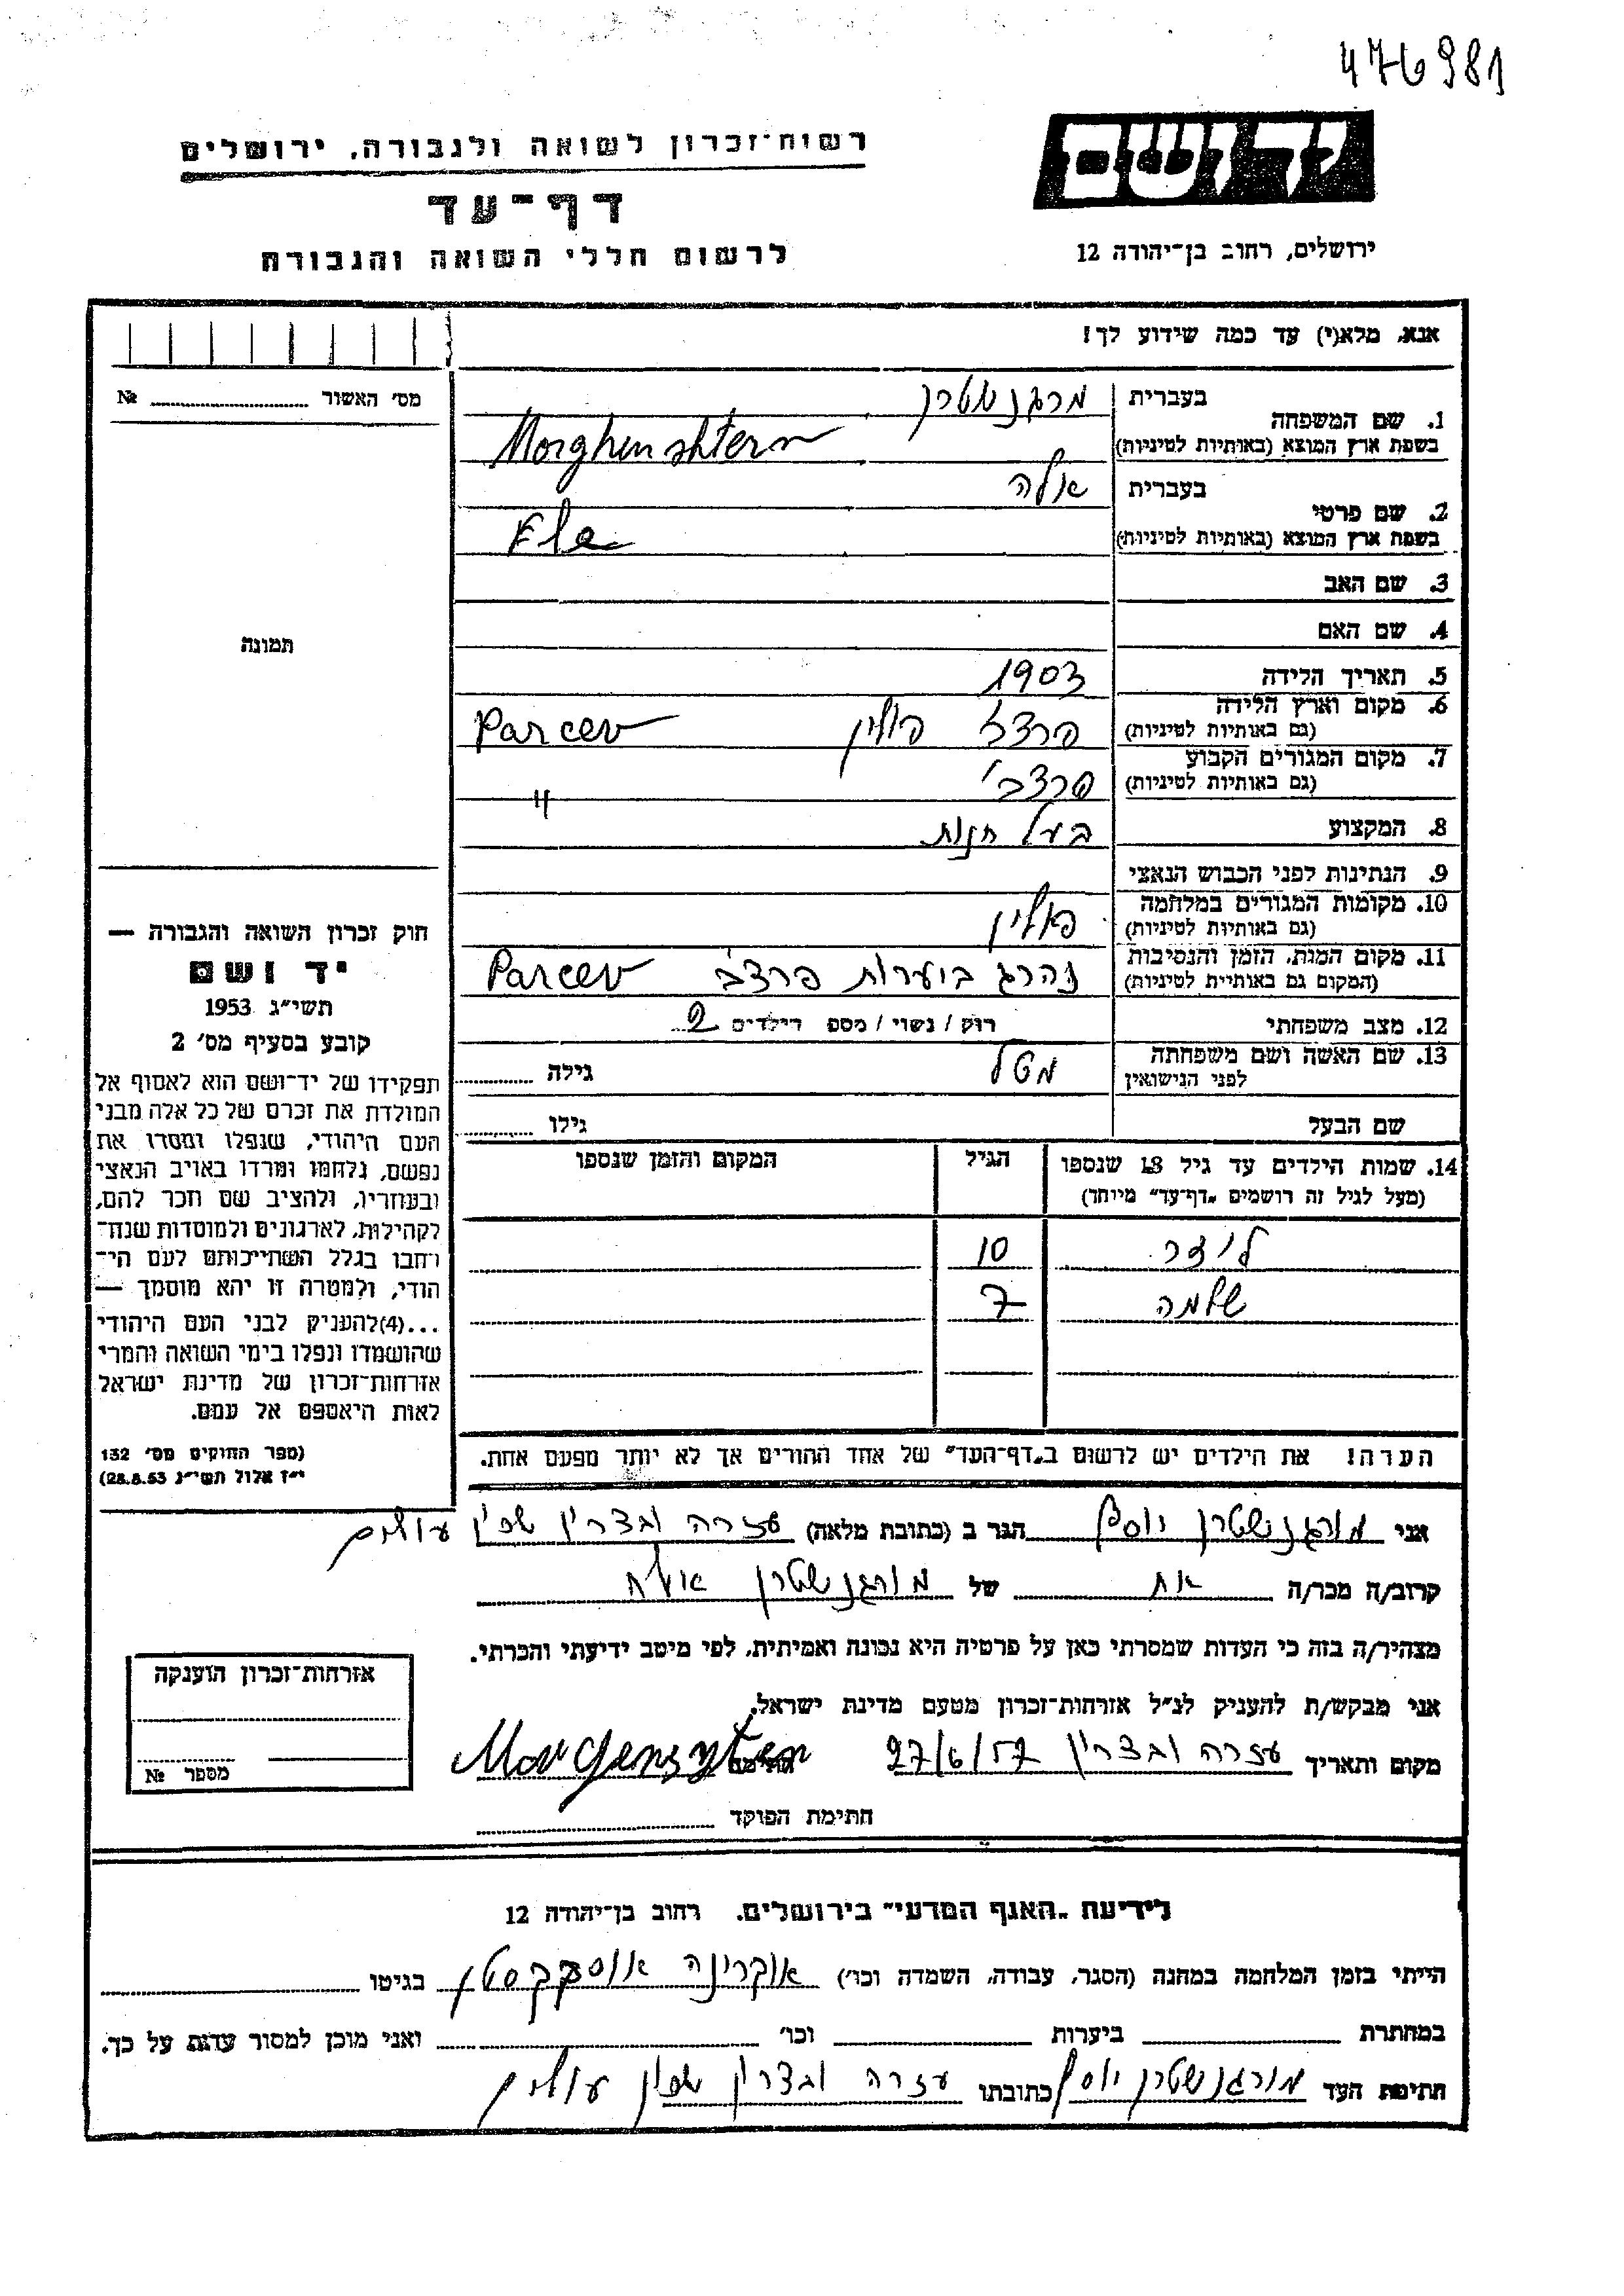 476981
יד ושם
רשות־זכרון לשואה ולגבורה, ירושלים
דף־עד
לרשום חללי השואה והגבורה
ירושלים, רחוב בן־יהודה 12
אנא, מלא(י) עד כמה שידוע לך!
מס' האשור № 
1. שם המשפחה בעברית מרגנשטרן
בשפת ארץ המוצא (באותיות לטיניות) Morghenshtern
2. שם פרטי בעברית אלה
בשפת ארץ המוצא (באותיות לטיניות) Ela
3. שם האב
4. שם האם
תמונה
5. תאריך הלידה 1903
6. מקום וארץ הלידה (גם באותיות לטיניות) פרצב פולין Parcev
7. מקום המגורים הקבוע (גם באותיות לטיניות) פרצב' "
8. המקצוע בעל חנות
9. הנתינות לפני הכבוש הנאצי
10. מקומות המגורים במלחמה (גם באותיות לטיניות) פולין
11. מקום המות, הזמן והנסיבות (המקום גם באותיית לטיניות) נהרג ביערות פרצב Parcev
12. מצב משפחתי רוק / נשוי / מספ הילדים 2
13. שם האשה ושם משפחתה לפני הנישואין מטל גילה
שם הבעל גילו
14. שמות הילדים עד גיל 18 שנספו הגיל המקום והזמן שנספו
(מעל לגיל זה רושמים „דף־עד" מיוחד)
ליזר 10
שלמה 7
הערה! את הילדים יש לרשום ב„דף־העד" של אחד ההורים אך לא יותר מפעם אחת.
חוק זכרון השואה והגבורה —
יד ושם
תשי״ג 1953
קובע בסעיף מס' 2
תפקידו של יד־ושם הוא לאסוף אל
המולדת את זכרם של כל אלה מבני
העם היהודי, שנפלו ומסרו את
נפשם, נלחמו ומרדו באויב הנאצי
ובעוזריו, ולהציב שם וזכר להם,
לקהילות, לארגונים ולמוסדות שנח־
רחבו בגלל השתייכותם לעם הי־
הודי, ולמטרה זו יהא מוסמך —
...(4) להעניק לבני העם היהודי
שהושמדו ונפלו בימי השואה והמרי
אזרחות־זכרון של מדינת ישראל
לאות היאספם אל עמם.
(ספר החוקים מס' 132
י״ז אלול תשי״ג 28.8.53)
אני מורגנשטרן יוסף הגר ב (כתובת מלאה) עזרה ובצרון שכון עולים
קרוב/ה מכר/ה אח של מורגנשטרן אלה
מצהיר/ה בזה כי העדות שמסרתי כאן על פרטיה היא נכונה ואמיתית, לפי מיטב ידיעתי והכרתי.
אני מבקש/ת להעניק לנ״ל אזרחות־זכרון מטעם מדינת ישראל.
מקום ותאריך עזרה ובצרון 27/6/57 חתימה Morgensztern
חתימת הפוקד
אזרחות־זכרון הוענקה
מספר №
לידיעת „האגף המדעי" בירושלים, רחוב בן־יהודה 12
הייתי בזמן המלחמה במחנה (הסגר, עבודה, השמדה וכו') אוקרינה בגיטו
במחתרת ביערות וכו' ואני מוכן למסור עדות על כך.
חתימת העד מורגנשטרן יוסף כתובתו עזרה ובצרון שכון עולים